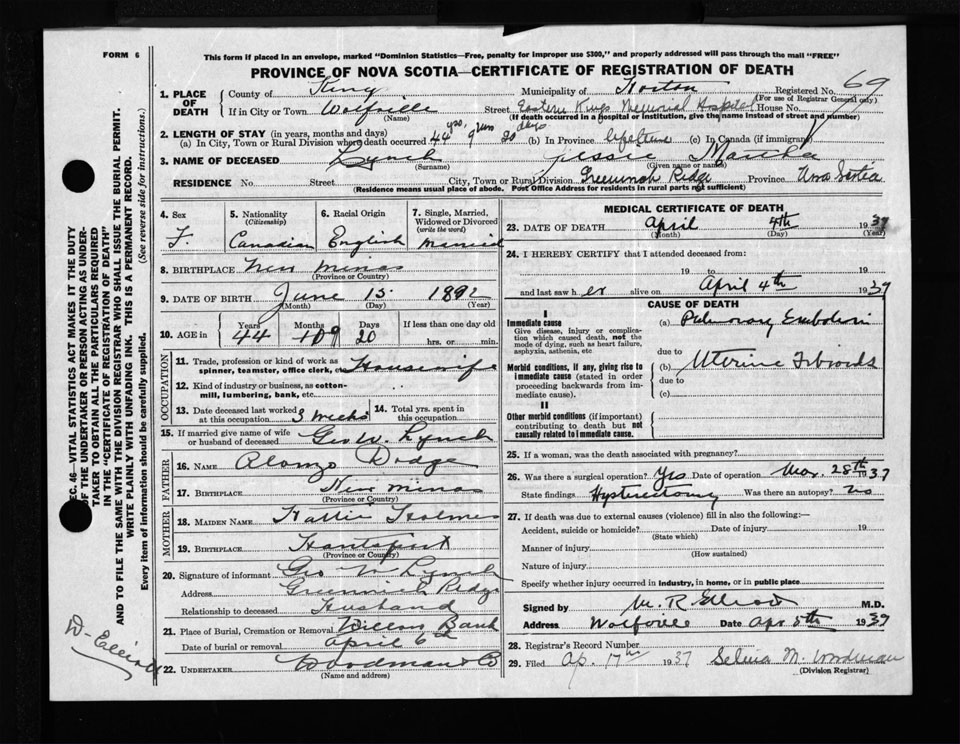 FORM 6
This form if placed in an envelope, marked "Dominion Statistics—Free, penalty for improper use $300," and properly addressed will pass through the mail "FREE"
PROVINCE OF NOVA SCOTIA—CERTIFICATE OF REGISTRATION OF DEATH
69
1. PLACE OF DEATH County of King Municipality of Horton Registered No.
(For use of Registrar General only)
If in City or Town Wolfville Street Eastern Kings Memorial Hospital House No.
(Name) (If death occurred in a hospital or institution, give the name instead of street and number)
2. LENGTH OF STAY (in years, months and days)
(a) In City, Town or Rural Division where death occurred 44 yrs, 9 mos 20 days (b) In Province lifetime (c) In Canada (if immigrant)
3. NAME OF DECEASED Lynch Jessie Martha
(Surname) (Given name or names)
RESIDENCE No. Street City, Town or Rural Division Greenwich Ridge Province Nova Scotia
(Residence means usual place of abode. Post Office Address for residents in rural parts not sufficient)
4. Sex F.
5. Nationality (Citizenship) Canadian
6. Racial Origin English
7. Single, Married, Widowed or Divorced (write the word) Married
8. BIRTHPLACE New Minas
(Province or Country)
9. DATE OF BIRTH June 15 1892
(Month) (Day) (Year)
10. AGE in Years Months Days If less than one day old
44 10 9 20 hrs. or min.
OCCUPATION
11. Trade, profession or kind of work as spinner, teamster, office clerk, etc. Housewife
12. Kind of industry or business, as cotton-mill, lumbering, bank, etc.
13. Date deceased last worked at this occupation 3 weeks 14. Total yrs. spent in this occupation
15. If married give name of wife or husband of deceased Geo W. Lynch
FATHER
16. NAME Alonzo Dodge
17. BIRTHPLACE New Minas
(Province or Country)
MOTHER
18. MAIDEN NAME Hattie Holmes
19. BIRTHPLACE Hantsport
(Province or Country)
20. Signature of informant Geo W Lynch
Address Greenwich Ridge
Relationship to deceased Husband
21. Place of Burial, Cremation or Removal Willow Bank
Date of burial or removal April 6th
22. UNDERTAKER Woodman & Co
(Name and address)
MEDICAL CERTIFICATE OF DEATH
23. DATE OF DEATH April 4th 1937
(Month) (Day) (Year)
24. I HEREBY CERTIFY that I attended deceased from:
19 to 19
and last saw her alive on April 4th 1937
CAUSE OF DEATH
I
Immediate cause
Give disease, injury or complication which caused death, not the mode of dying, such as heart failure, asphyxia, asthenia, etc
(a) Pulmonary Embolism
due to
Morbid conditions, if any, giving rise to immediate cause (stated in order proceeding backwards from immediate cause).
(b) Uterine Fibroids
due to
(c)
II
Other morbid conditions (if important) contributing to death but not causally related to immediate cause.
25. If a woman, was the death associated with pregnancy?
26. Was there a surgical operation? Yes Date of operation Mar. 28th 1937
State findings Hysterectomy Was there an autopsy? No
27. If death was due to external causes (violence) fill in also the following:—
Accident, suicide or homicide? Date of injury 19
(State which)
Manner of injury
(How sustained)
Nature of injury
Specify whether injury occurred in industry, in home, or in public place
Signed by M. R. Elliott M.D.
Address Wolfville Date Apr 5th 1937
28. Registrar's Record Number
29. Filed Ap. 17th 1937 Selina M. Woodman
(Division Registrar)
SEC. 46—VITAL STATISTICS ACT MAKES IT THE DUTY
OF THE UNDERTAKER OR PERSON ACTING AS UNDER-
TAKER TO OBTAIN ALL THE PARTICULARS REQUIRED
IN THE "CERTIFICATE OF REGISTRATION OF DEATH"
AND TO FILE THE SAME WITH THE DIVISION REGISTRAR WHO SHALL ISSUE THE BURIAL PERMIT.
WRITE PLAINLY WITH UNFADING INK. THIS IS A PERMANENT RECORD.
Every item of information should be carefully supplied. (See reverse side for instructions.)
D-Elliott